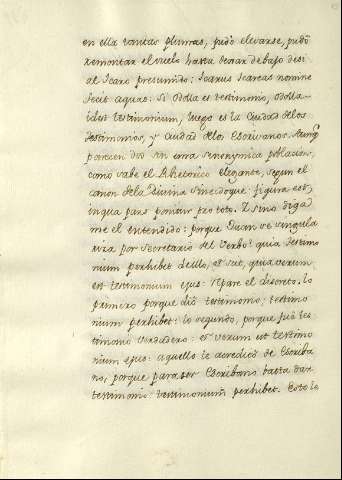 en ella tantas plumas, pudo elevarse, pudo
remontar el vuelo hasta dexar debajo de si
al Icaro presumido: Icarus Icareas nomine
fecit aquas: Si Odolla es testimonio, Odolla
idest testimonium, luego es la Ciudad de los
testimonios, y Ciudad de los Escrivanos. Aunq
parecen dos son una synonymica poblacion,
como sabe el Rhetorico elegante, segun el
canon de la Divina Sinecdoque: figura est,
in qua pars ponitur pro toto. Y sino diga
me el entendido: porque Juan se singula
riza por Secretario del Verbo? quia testimo
nium perhibet de illo, et sut, quia verum
est testimonium ejus: repare el discreto. lo
primero porque dió testimonio, testimo
nium perhibet: lo segundo, porque fue tes
timonio verdadero: et verum est testimo
nium ejus: aquello le acredita de Escriba
no, porque para ser Escribano basta dar
testimonio: testimonium perhibet. Esto le